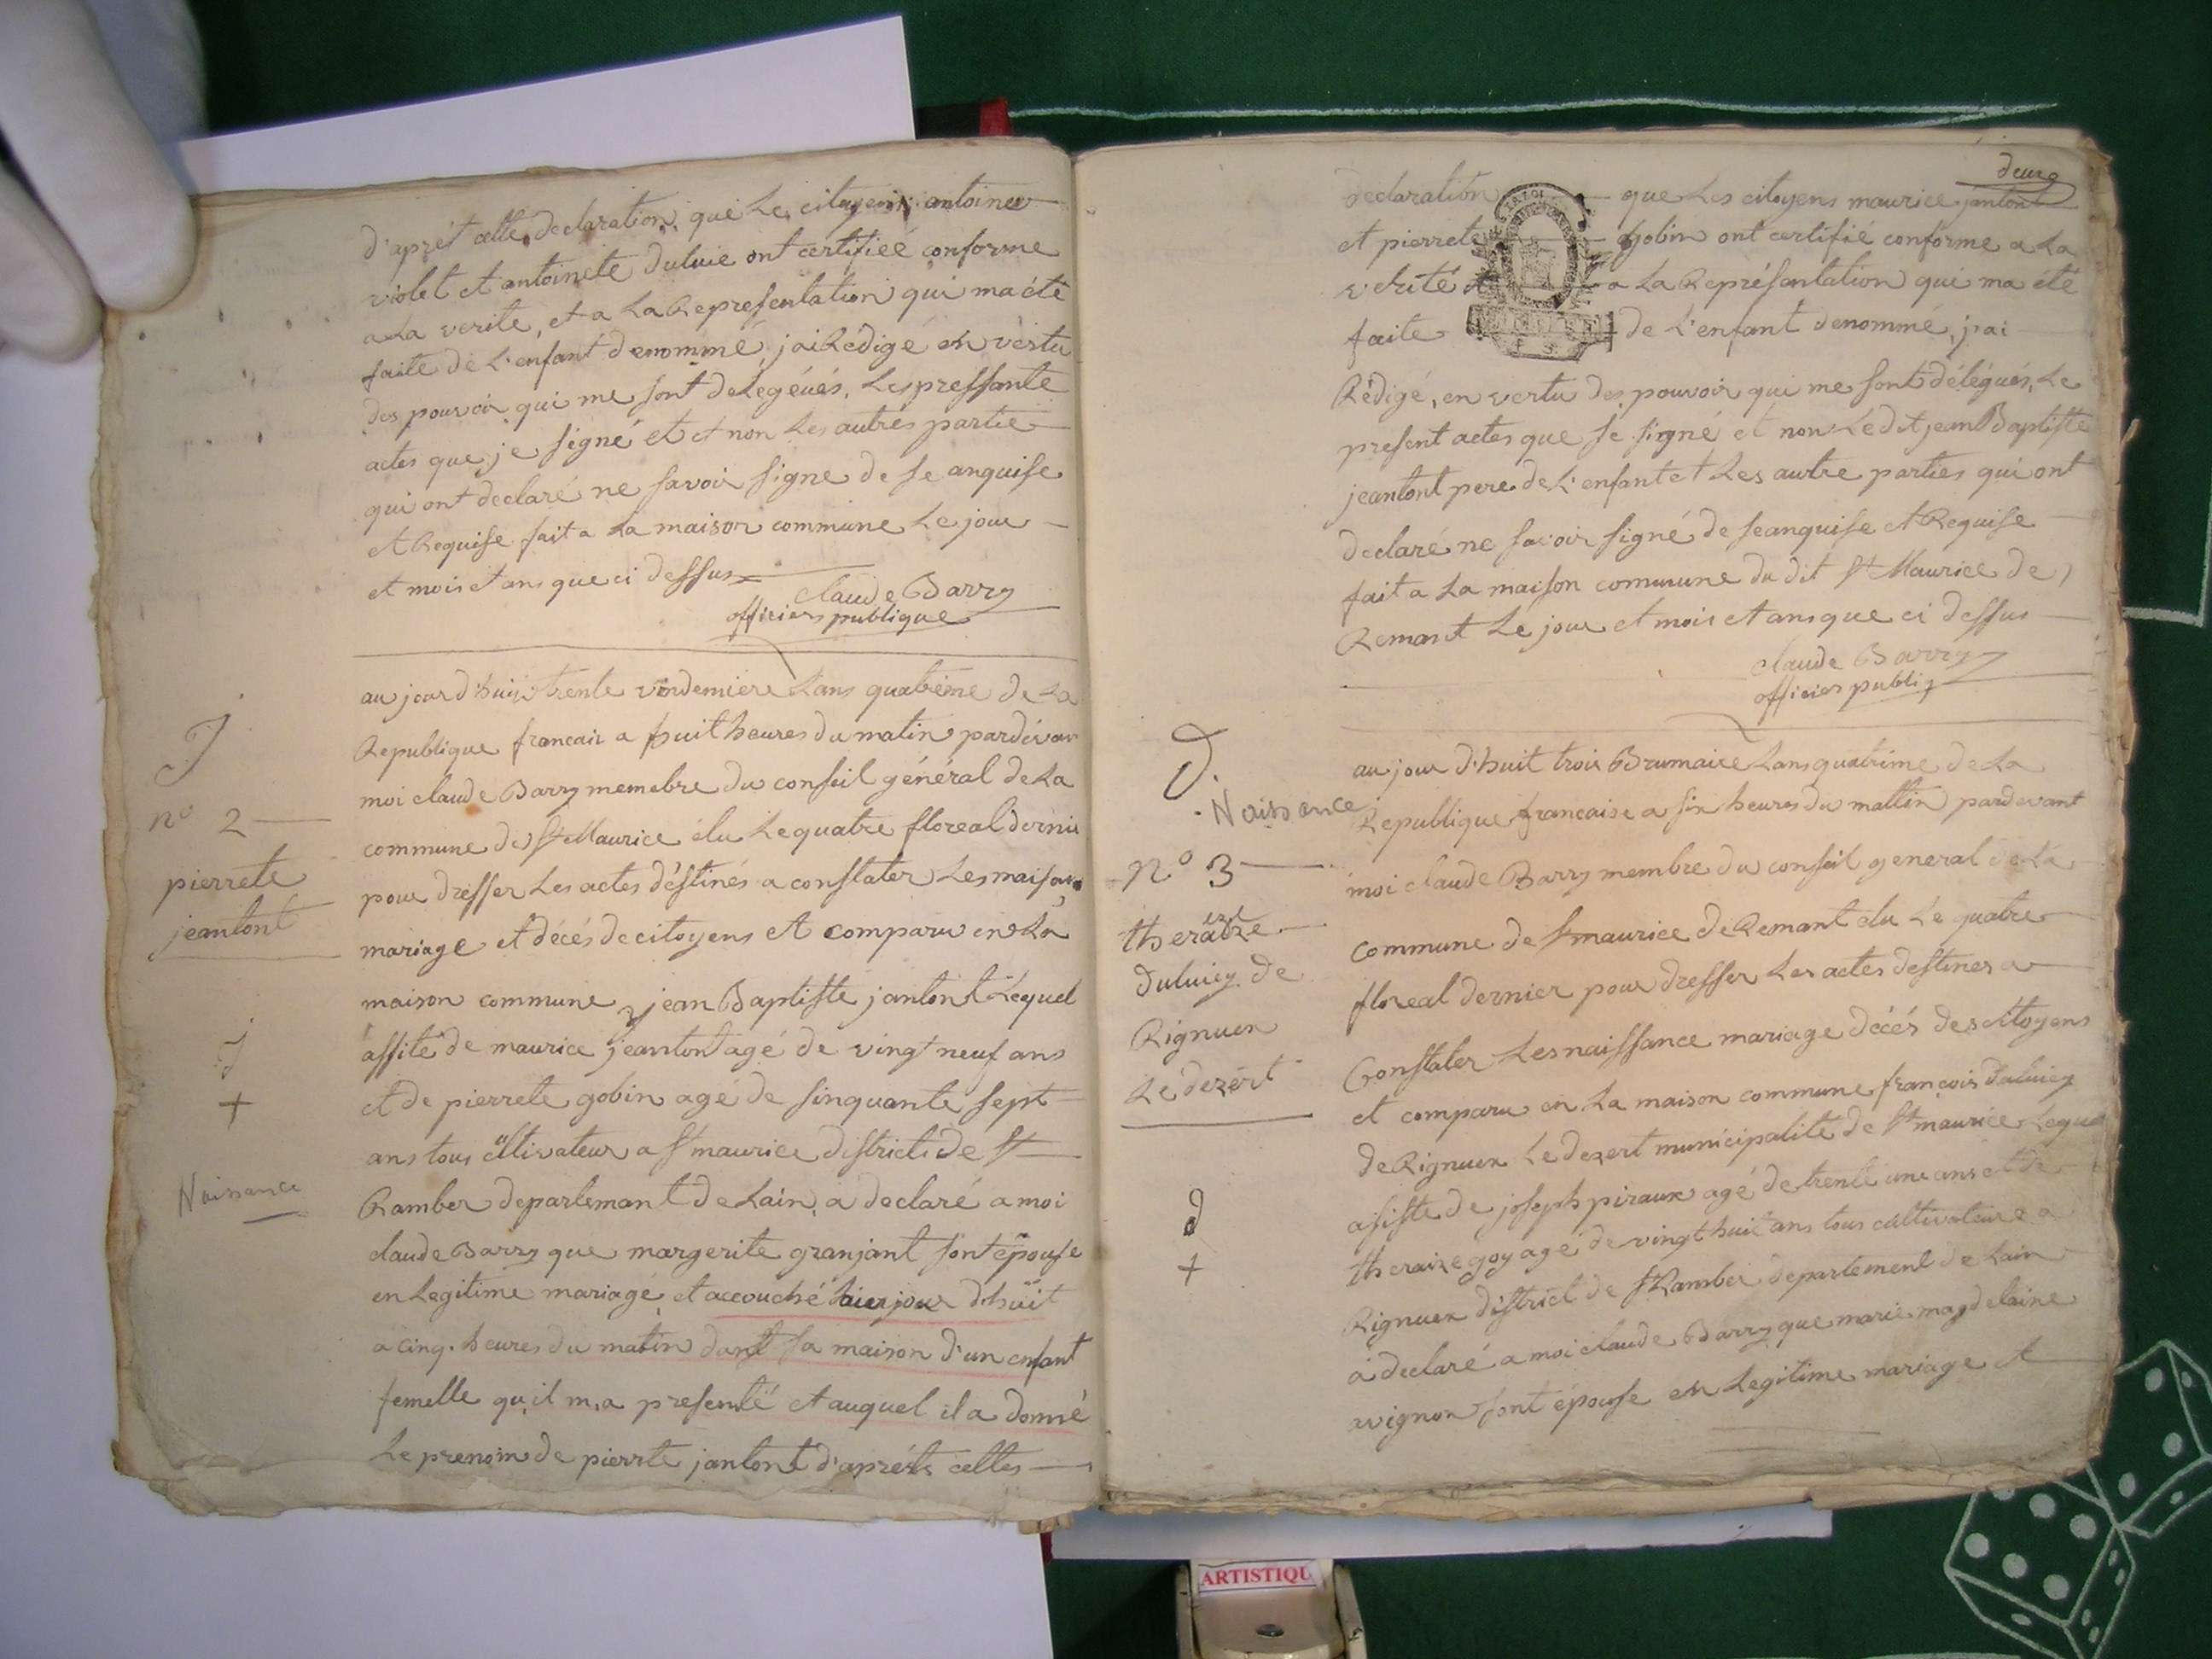 d'aprést cette declaration que Le citoyens antoine
violet et antoinete duluie ont certifieé conforme
a La verite, et a La Representation qui ma été
faite de L'enfant denommé, jai Rédigé en vertu
des pouvoir qui me sont delegéués, Les pressante
actes que je signé et et non Les autres partie
qui ont declaré ne savoir signe de se anquise
et Requise fait a La maison commune Le jour
et mois et ans que ci dessus
claude Barry
officiers publique
J
n° 2
pierrete
jeantont
J
+
Naissance
au jour d'huit trente vendemiere Lans quatrième de La
Republique francais a huit heures du matin pardevan
moi claude Barry memebre du conseil général de La
commune de St Maurice élu Le quatre floreal dernie
pour dresser Les actes déstinés a constater Les naisan
mariage et décés de citoyens et comparu en La
maison commune jean Baptiste jantont Lequel
assité de maurice jeantont agé de vingt neuf ans
et de pierrete gobin agé de sinquante sept
ans tous cultivateur a St maurice districts de St
Ramber departemant de Lain, a declaré a moi
claude Barry que margerite granjant sont épouse
en Legitime mariagé et accouché hier jour d'huit
a cinq heures du matin dans sa maison d'un enfant
femelle qu'il m,a presenté et auquel il a donné
Le prenom de pierrte jantont d'aprést celtes
deuxe
declaration que Les citoyens maurice jantont
et pierrete gobin ont certifié conforme a La
verité et a La Représantation qui ma été
faite de L'enfant denommé, jai
Rédigé, en vertu des pouvoir qui me sont délégués, Le
present actes que je signé et non Ledit jean Baptiste
jeantont pere de L'enfant et Les autre parties qui ont
declaré ne savoir signé de se anquise et Requise
fait a La maison commune du dit St Maurice de
Remant Le jour et mois et ans que ci dessus
claude Barry
officier publiq
D.
Naissance
n° 3
theraize
duluiey de
Rignuex
Le dezert
d
+
au jour d'huit trois Brumaire Lans quatrime de La
Republique francaise a six heures du mattin pardevant
moi claude Barry membre du conseil general de La
commune de St maurice de Remant elu Le quatre
floreal dernier pour dresser Les actes destines a
Constater Les naissance mariage décés des citoyens
et comparu en La maison commune francois duluiey
de Rignuex Le dezert municipalité de St maurice Leque
asiste de joseph piraux agé de trente une ans et de
theraize goy agé de vingt huit ans tous cultivateure a
Rignuex district de St Ramber departement de Lain
a declaré a moi claude Barry que marie magdelaine
avignon sont épouse en Legitime mariage et
ARTISTIQU